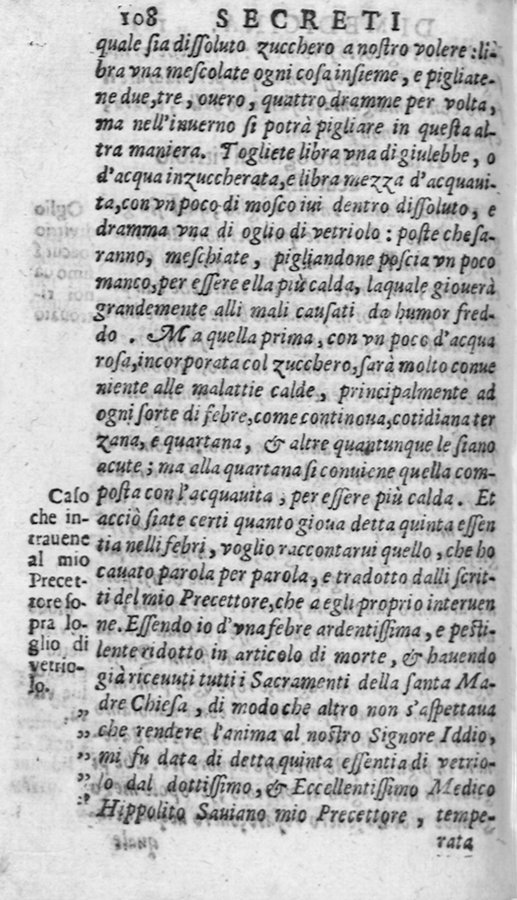 108 SECRETI
quale sia dissoluto zucchero a nostro volere: li-
bra vna mescolate ogni cosa insieme, e pigliate-
ne due, tre, ouero, quattro dramme per volta,
ma nell'inuerno si potrà pigliare in questa al-
tra maniera. Togliete libra vna di giulebbe, o
d'acqua inzuccherata, e libra mezza d'acquaui-
ta, con vn poco di mosco iui dentro dissoluto, e
dramma vna di oglio di vetriolo: poste che sa-
ranno, meschiate, pigliandone poscia vn poco
manco, per essere ella più calda, laquale giouerà
grandemente alli mali causati da humor fred-
do. Ma quella prima, con vn poco d'acqua
rosa, incorporata col zucchero, sarà molto conue
niente alle malattie calde, principalmente ad
ogni sorte di febre, come continoua, cotidiana ter
zana, e quartana, & altre quantunque le siano
acute; ma alla quartana si conuiene quella com-
posta con l'acquauita, per essere più calda. Et
acciò siate certi quanto gioua detta quinta essen
tia nelli febri, voglio raccontarui quello, che ho
cauato parola per parola, e tradotto dalli scrit-
ti del mio Precettore, che a egli proprio interuen
ne. Essendo io d'vna febre ardentissima, e pesti-
lente ridotto in articolo di morte, & hauendo
già riceuuti tutti i Sacramenti della santa Ma-
dre Chiesa, di modo che altro non s'aspettaua
che rendere l'anima al nostro Signore Iddio,
mi fu data di detta quinta essentia di vetrio-
lo dal dottissimo, & Eccellentissimo Medico
Hippolito Sauiano mio Precettore, tempe-
rata
Caso
che in-
trauene
al mio
Precet-
tore so-
pra lo-
glio di
vetrio-
lo.
„
„
„
„
„